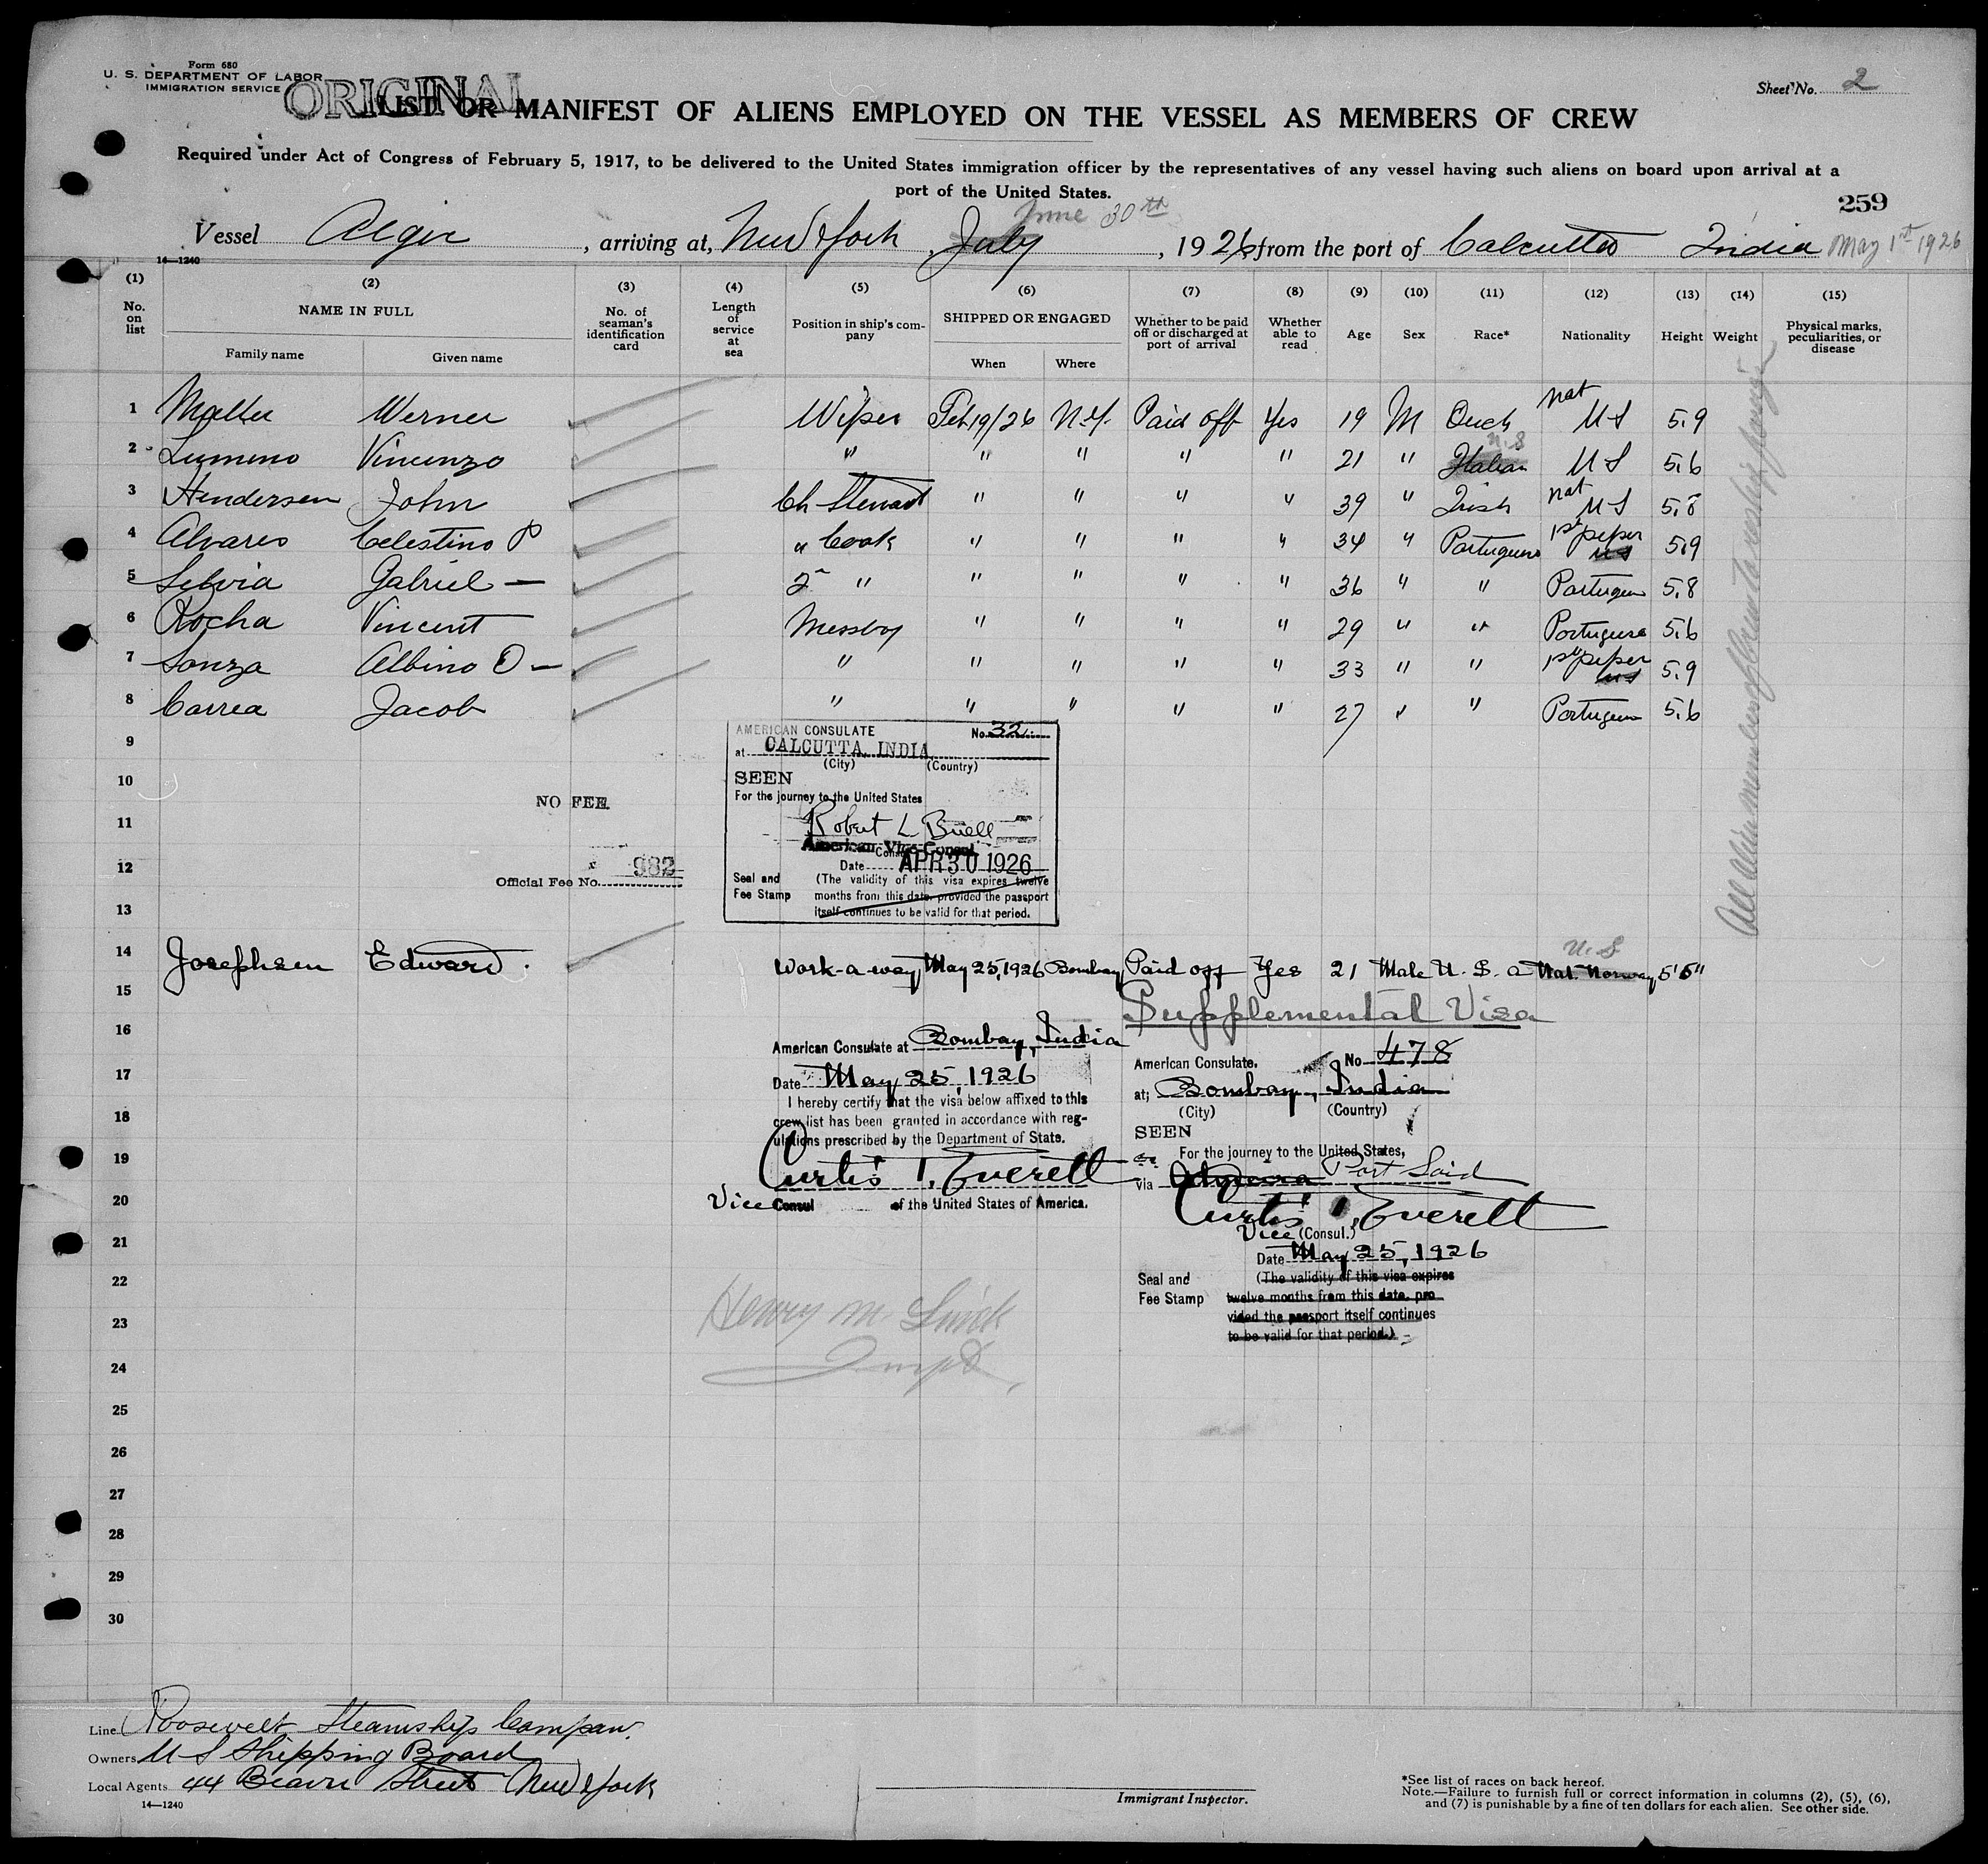 Form 680
U. S. DEPARTMENT OF LABOR
IMMIGRATION SERVICE
ORIGINAL
Sheet No. 2
LIST OR MANIFEST OF ALIENS EMPLOYED ON THE VESSEL AS MEMBERS OF CREW
Required under Act of Congress of February 5, 1917, to be delivered to the United States immigration officer by the representatives of any vessel having such aliens on board upon arrival at a
port of the United States.
259
June 30th
Vessel Algic, arriving at, New York July, 1926 from the port of Calcutta India May 1st 1926
14—1240
(1) (2) (3) (4) (5) (6) (7) (8) (9) (10) (11) (12) (13) (14) (15)
No. on list
NAME IN FULL
Family name Given name
No. of seaman's identification card
Length of service at sea
Position in ship's company
SHIPPED OR ENGAGED
When Where
Whether to be paid off or discharged at port of arrival
Whether able to read
Age
Sex
Race*
Nationality
Height
Weight
Physical marks, peculiarities, or disease
1 Werner Wiper Feb 19/26 N.Y. Paid off Yes 19 M nat US 5.9
2 Lumino Vincenzo " " " " " 21 " Italian U.S US 5.6
3 Hendersen John Ch Steward " " " " 39 " Irish nat US 5.8
4 Alvares Celestino P " Cook " " " " 34 " Portuguese 1st paper US 5.9
5 Selvia Gabriel — 2 " " " " " 36 " " Portuguese 5.8
6 Rocha Vincent Messboy " " " " 29 " " Portuguese 5.6
7 Sonza Albino O — " " " " " 33 " " 1st paper US 5.9
8 Carrea Jacob " " " " " 27 " " Portuguese 5.6
9
10
11
12
13
All alien members of crew
AMERICAN CONSULATE No. 32
at CALCUTTA, INDIA
(City) (Country)
SEEN
For the journey to the United States
Robert L Buell
American Vice Consul
Date APR 30 1926
Seal and Fee Stamp
(The validity of this visa expires twelve
months from this date, provided the passport
itself continues to be valid for that period.
NO FEE.
Official Fee No. 982
14 Josephsen Edward. Work-a-way May 25, 1926 Bombay Paid off Yes 21 Male U. S. a Nat. Norway U.S 5'5"
15
16
17
18
19
20
21
22
23
24
25
26
27
28
29
30
American Consulate at Bombay, India
Date May 25, 1926
I hereby certify that the visa below affixed to this
crew list has been granted in accordance with reg-
ulations prescribed by the Department of State.
Curtis T. Everett
Vice Consul of the United States of America.
Supplemental Visa
American Consulate. No 478
at; Bombay, India
(City) (Country)
SEEN
For the journey to the United States,
via Port Said
Curtis T. Everett
Vice (Consul.)
Date May 25, 1926
Seal and
Fee Stamp
(The validity of this visa expires
twelve months from this date. pro
vided the passport itself continues
to be valid for that period.)
Henry M.
Line Roosevelt Steamship Company.
Owners U S Shipping Board
Local Agents 44 Beaver Street New York
14—1240
Immigrant Inspector.
*See list of races on back hereof.
Note.—Failure to furnish full or correct information in columns (2), (5), (6),
and (7) is punishable by a fine of ten dollars for each alien. See other side.